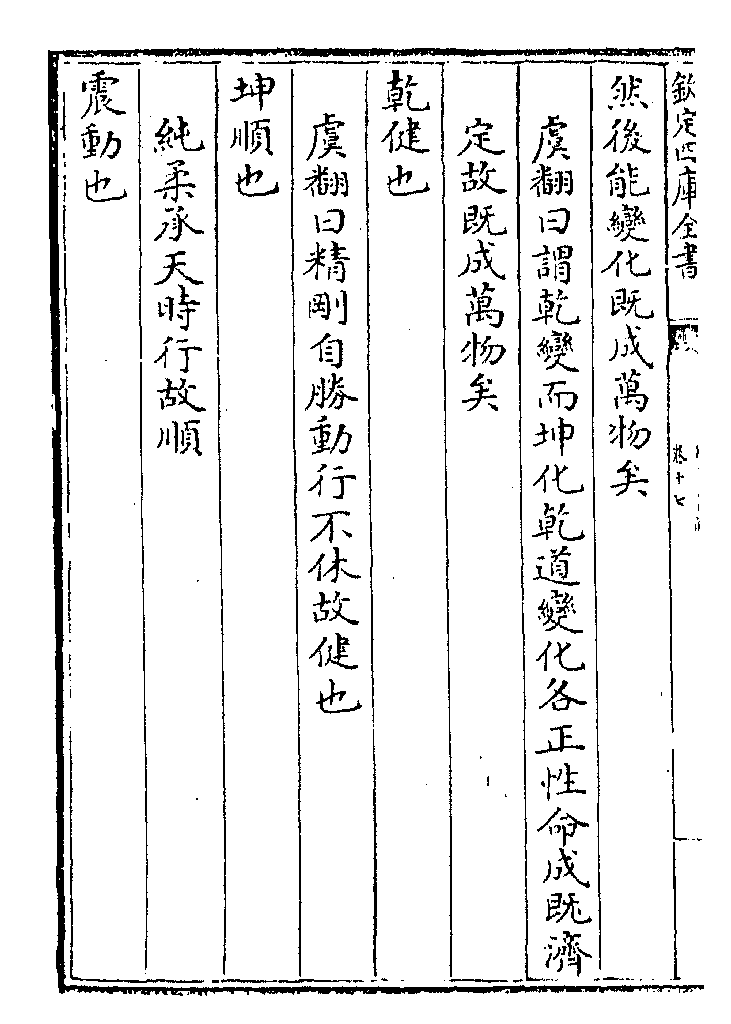 欽定四庫全書
卷十七
然後能變化既成萬物矣
虞翻曰謂乾變而坤化乾道變化各正性命成既濟
定故既成萬物矣
乾健也
虞翻曰精剛自勝動行不休故健也
坤順也
純柔承天時行故順
震動也